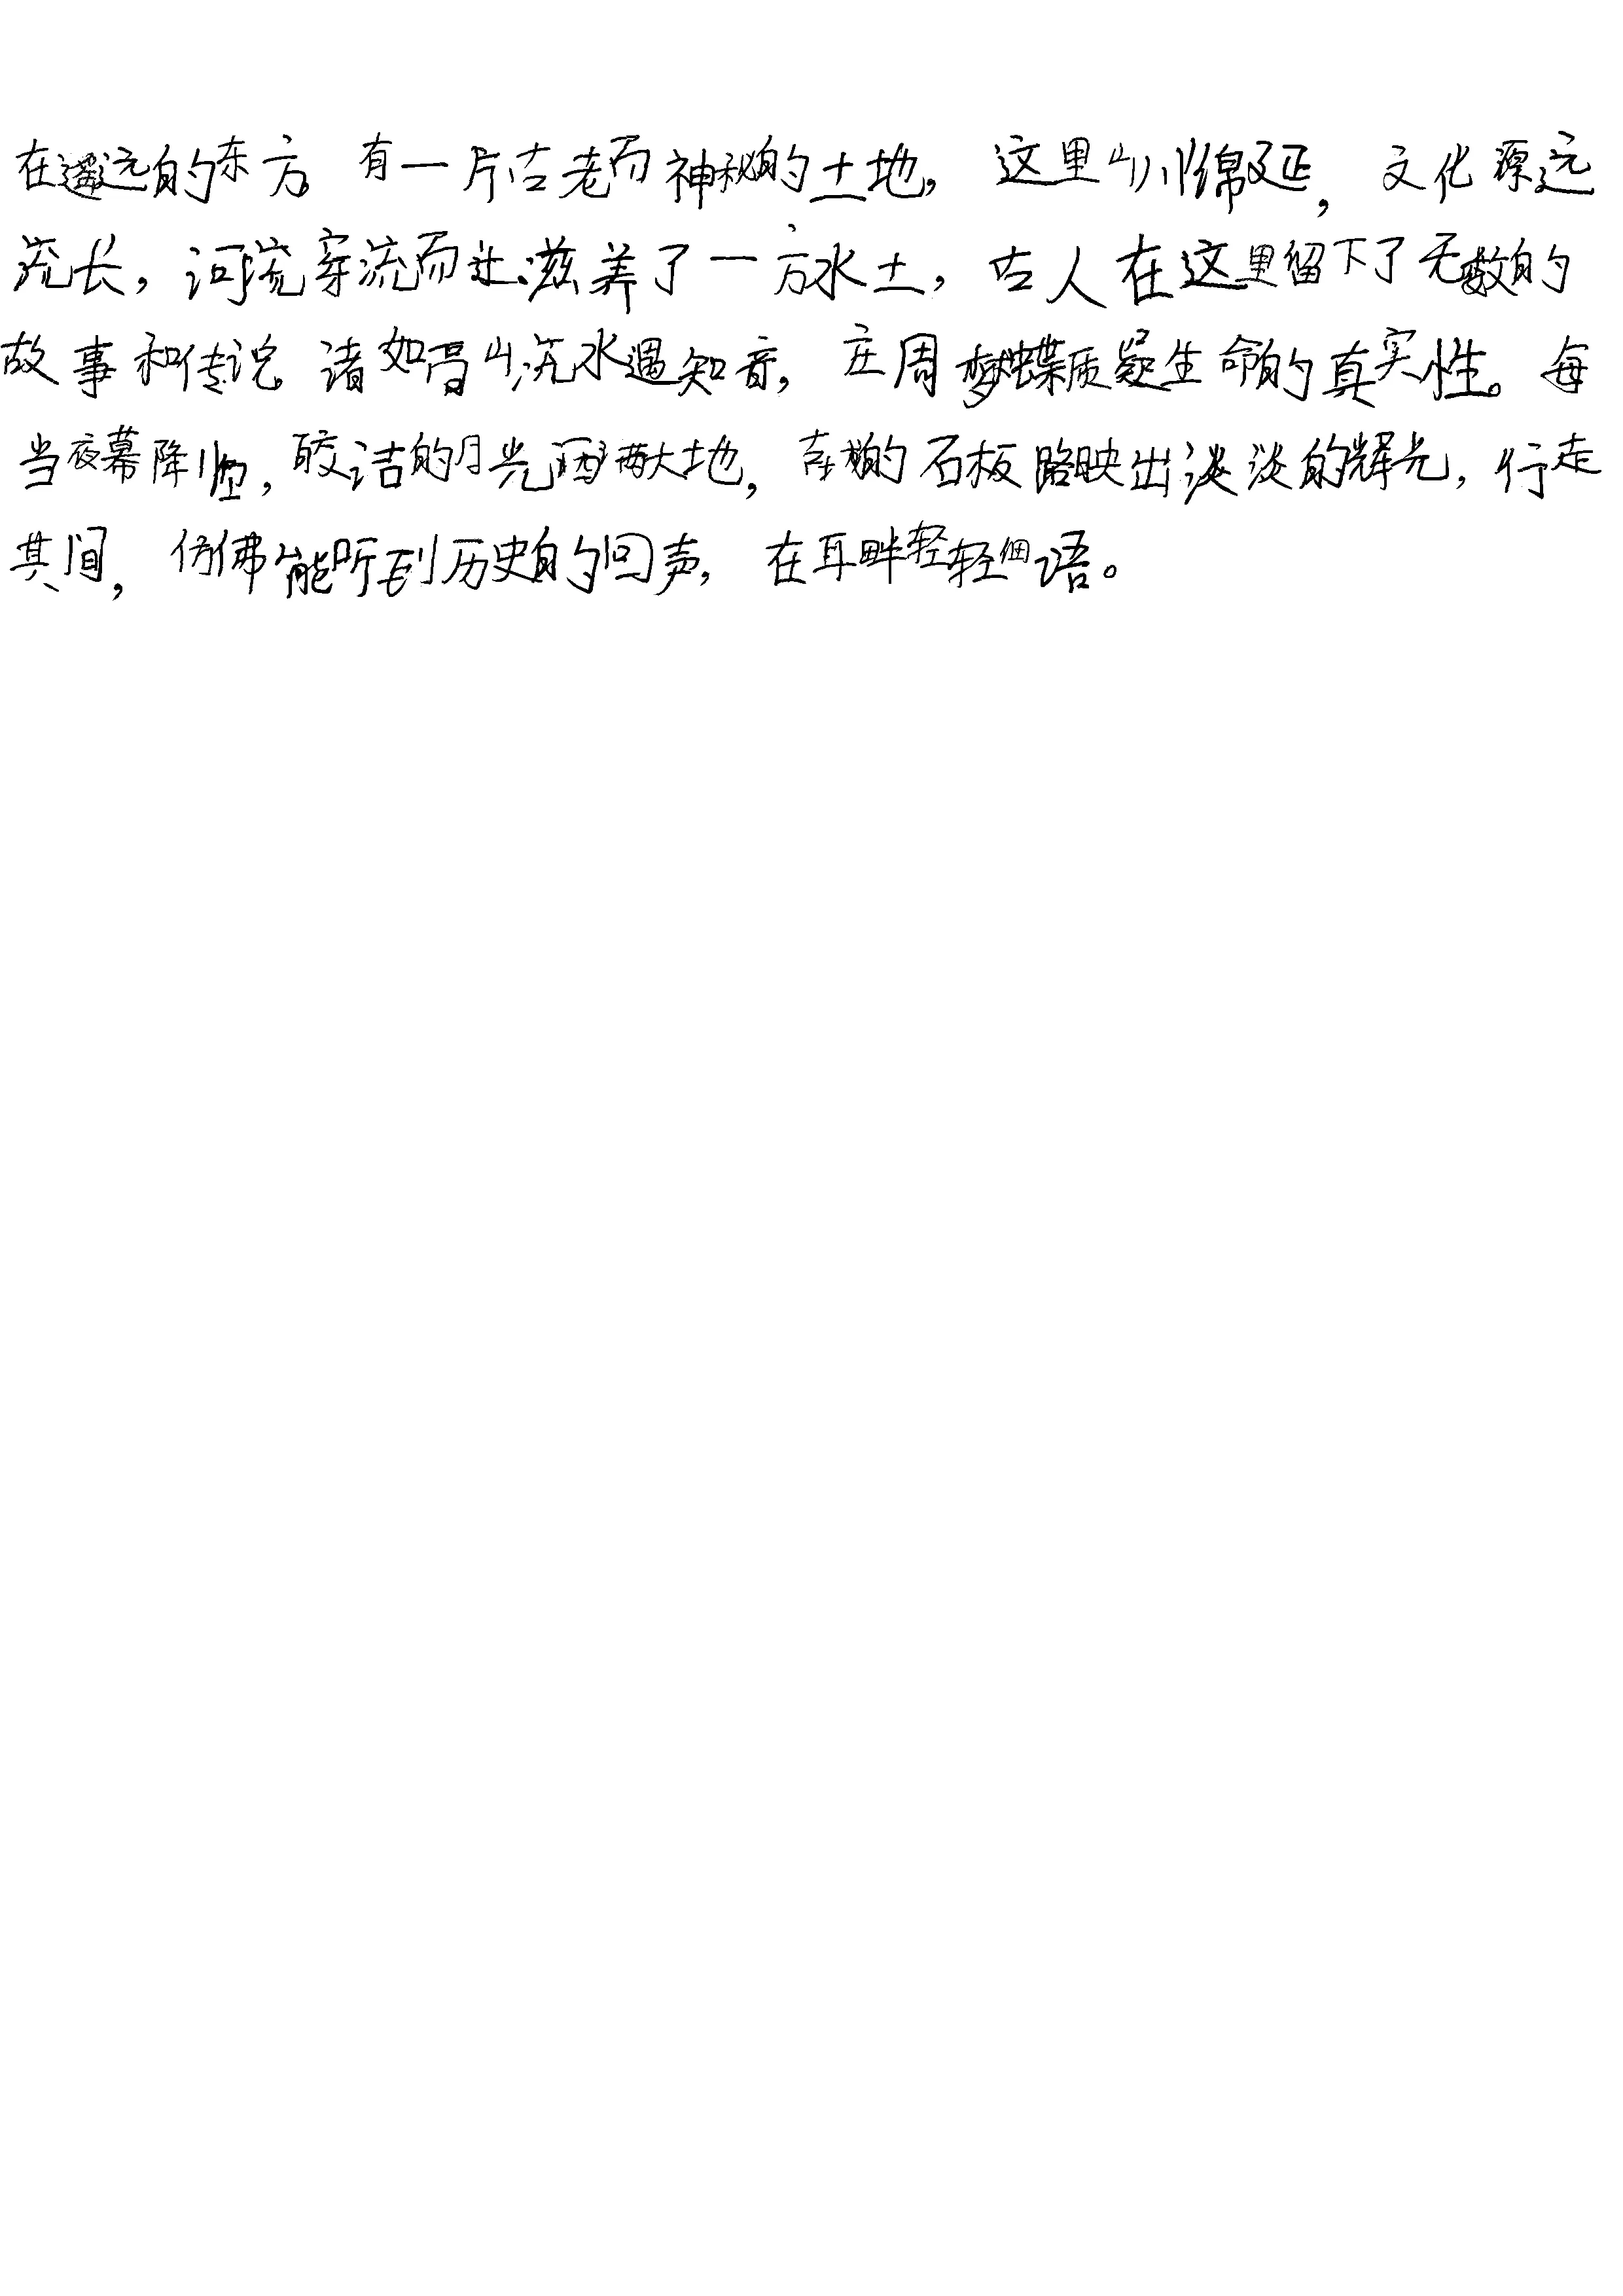 在遥远的东方,有一片古老而神秘的土地,这里山川绵延,文化源远
流长,河流穿流而过,滋养了一方水土,古人在这里留下了无数的
故事和传说,诸如高山流水遇知音,庄周梦蝶质疑生命的真实性。每
当夜幕降临,皎洁的月光洒满大地,古朴的石板路映出淡淡的辉光,行走
其间,仿佛能听到历史的回声,在耳畔轻轻细语。